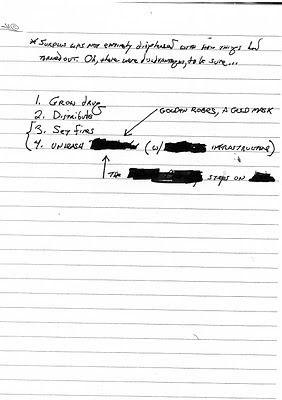 * SURPLUS WAS NOT ENTIRELY DISPLEASED WITH HOW THINGS HAD
TURNED OUT. Oh, there were disadvantages, to be sure...
GOLDEN ROBES, A GOLD MASK
1. GROW DRUG
2. DISTRIBUTE
3. SET FIRES
4. UNLEASH (W/ INFRASTRUCTURE)
THE STEPS ON